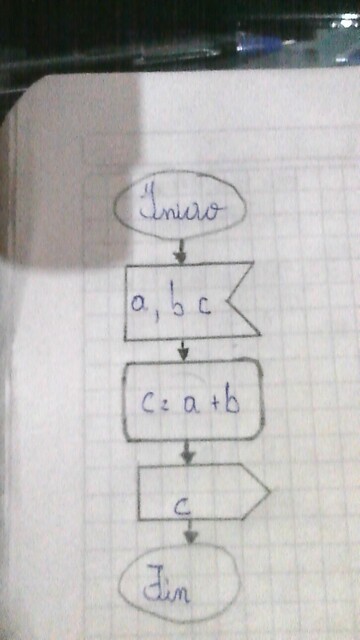 Inicio
a, b c
c = a + b
c
Fin